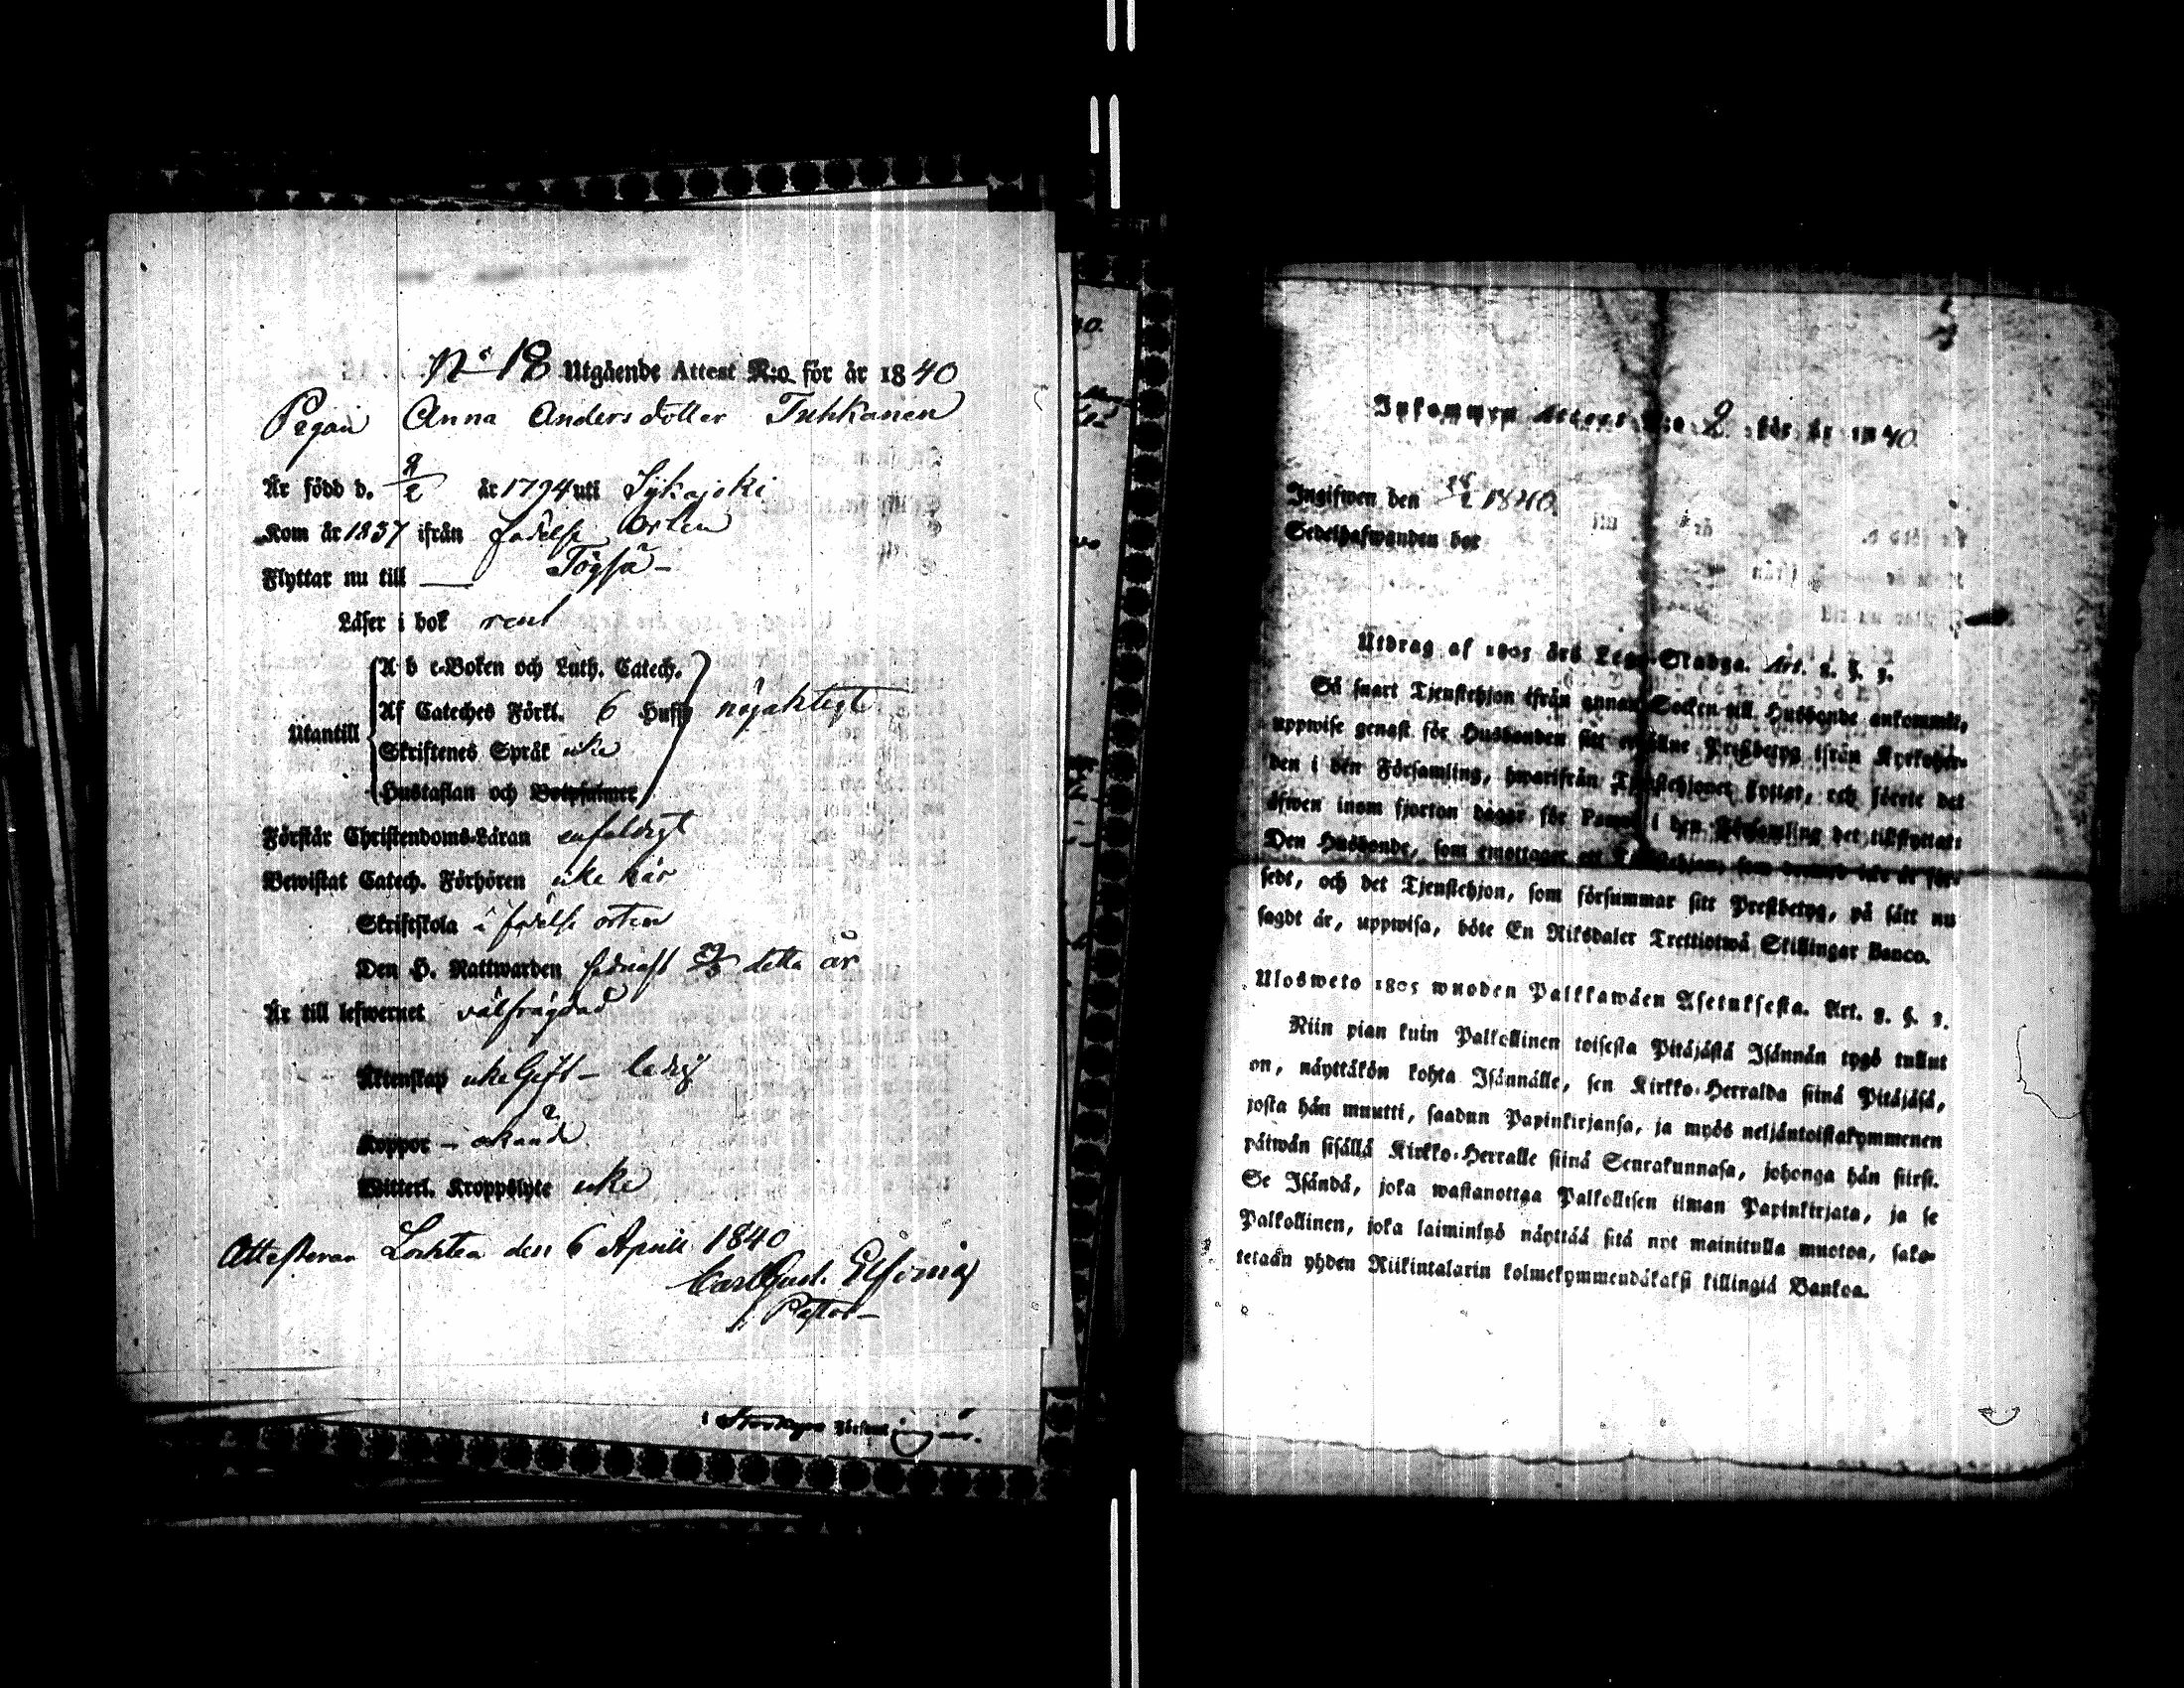 No 18 Utgående Attest N:o för år 1840
Pegan Anna Andersdotter Tuhkanen
Är född d. 9/2 år 1794 uti Sijkajoki
Kom år 1837 ifrån födelse orten
Flyttar nu till
Läser i bok rent
Utantill
A b c-Boken och Luth. Catech.
Af Cateches Förkl. 6 Huff nöjaktigt
Skriftenes Språk icke
Hustaflan och Botpsalmer
Förstår Christendoms-Läran enfaldigt
Bewistat Catech. Förhören icke här
Skriftskola i födelse orten
Den H. Nattwarden sednast detta år
Är till lefwernet välfrägdad
Äktenskap icke Gift – ledig
Koppor –
Witterl. Kroppslyte icke
Attesteras Lochtea den 6 April 1840
Carl Gust.
Pastor
Inkommen Attest N:o 2 för år 1840
Ingifwen den 1840
Sedelhafwanden bor
Utdrag af 1805 års Lego-Stadga. Art. 2. §. 3.
Så snart Tjenstehjon ifrån annan Socken till Husbonde ankommit,
uppwise genast för Husbonden sitt erhållne Prestbetyg ifrån Kyrkoher-
den i den Församling, hwarifrån Tjenstehjonet flyttat, och förete det
äfwen inom fjorton dagar för i den Församling det tillflyttat:
Den Husbonde, som emottager ett Tjenstehjon, som
sedt, och det Tjenstehjon, som försummar sitt Prestbetyg, på sätt nu
sagdt är, uppwisa, böte En Riksdaler Trettiotwå Skillingar Banco.
Ulosweto 1805 wuoden Palkkawäen Asetuksesta. Art. 2. §. 3.
Niin pian kuin Palkollinen toisesta Pitäjästä Isännän tygö tullut
on, näyttäkön kohta Isännälle, sen Kirkko-Herralda siinä Pitäjäsä,
josta hän muutti, saadun Papinkirjansa, ja myös neljäntoistakymmenen
päiwän sisällä Kirkko-Herralle siinä Seurakunnasa, johonga hän siirst.
Se Isändä, joka wastanottaa Palkollisen ilman Papinkirjata, ja se
Palkollinen, joka laiminlyö näyttää sitä nyt mainitulla muotoa, sako-
tetaan yhden Riikintalarin kolmekymmendäkaksi killingiä Bankoa.